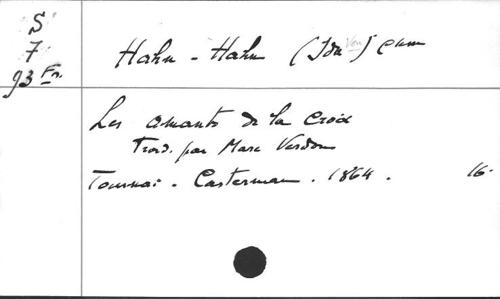 S
7
93 Fr.
Hahn - Hahn (Ida Von)
Les amants de la Croix
Trad. par Marc Verdon
Tournai - Casterman . 1864 . 16.